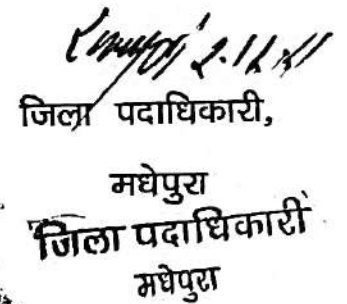 जिला पदाधिकारी,
मधेपुरा
जिला पदाधिकारी
मधेपुरा